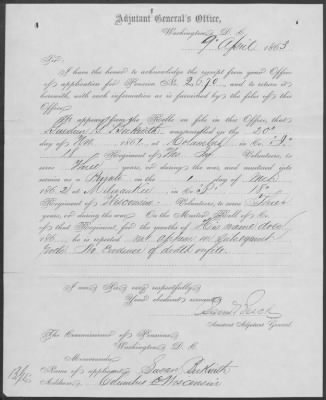 Adjutant General's Office,
Washington, D. C.
9" April 1863
Sir:
I have the honor to acknowledge the receipt from your Office
of application for Pension No. 2670, and to return it
herewith, with such information as is furnished by the files of this
Office.
It appears from the Rolls on file in this Office, that
was enrolled on the 20"
day of , 186 , at Columbus, in Co.
Regiment of Volunteers, to
serve Three years, or during the war, and mustered into
service as a Private on the day of
1862, at Milwaukee, in Co. , 18"
Regiment of Wisconsin Volunteers, to serve Three
years, or during the war. On the Muster Roll of Co.
of that Regiment, for the months of His name does
186 , he is reported not appear on subsequent
rolls. No evidence of death on file.
I am, Sir, very respectfully,
Your obedient servant,
Assistant Adjutant General.
The Commissioner of Pensions,
Washington, D. C.
Memoranda:
Name of applicant, Susan
Address, Columbus Wisconsin